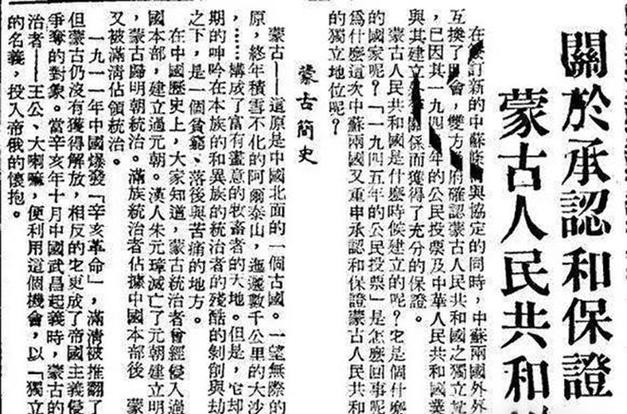 關於承認和保證
蒙古人民共和
在訂新的中蘇條與協定的同時,中蘇兩國外
互換了會,雙方府確認蒙古人民共和國之獨立
,已因其一九四年的公民投票及中華人民共和國業
與其建立關係而獲得了充分的保證。
蒙古人民共和國是什麼時候建立的呢?它是個什麼
的國家呢?「一九四五年的公民投票」是怎麼回事呢
爲什麼這次中蘇兩國又重申承認和保證蒙古人民共
的獨立地位呢?
蒙古簡史
蒙古——這原是中國北面的一個古國。一望無際的
原,終年積雪不化的阿爾泰山,迤邐數千公里的大沙
,……構成了富有畫意的牧畜者的大地。但是,它却
期的呻吟在本族的和異族的統治者的殘酷的剝削與劫
之下,是一個貧窮、落後與苦痛的地方。
在中國歷史上,大家知道,蒙古統治者曾經侵入過
國本部,建立過元朝。漢人朱元璋滅亡了元朝建立明
,蒙古歸明朝統治。滿族統治者佔據中國本部後,蒙
又被滿清佔領統治。
一九一一年中國爆發「辛亥革命」,滿清被推翻了
但蒙古仍沒有獲得解放,相反的它更成了帝國主義侵
爭奪的對象。當辛亥年十月中國武昌起義時,蒙古的
治者——王公、大喇嘛,便利用這個機會,以「獨立
的名義,投入帝俄的懷抱。